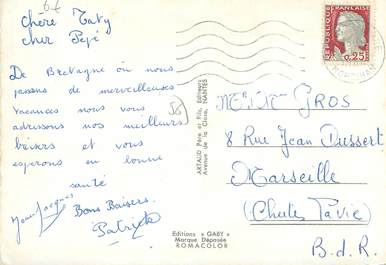 Chère Taty
cher Pépé
De Bretagne où nous
passons de merveilleuses
vacances nous vous
adressons nos meilleurs
baisers et vous
espérons en bonne
santé
Jean-Jacques
Bons Baisers
Patrick
ARTAUD Père et Fils, Editeurs
Avenue de la Close, NANTES
Editions « GABY »
Marque Déposée
ROMACOLOR
REPUBLIQUE FRANÇAISE
0,25
GROS
8 Rue Jean Dussert
Marseille
(Chutes Lavie)
B.d.R.